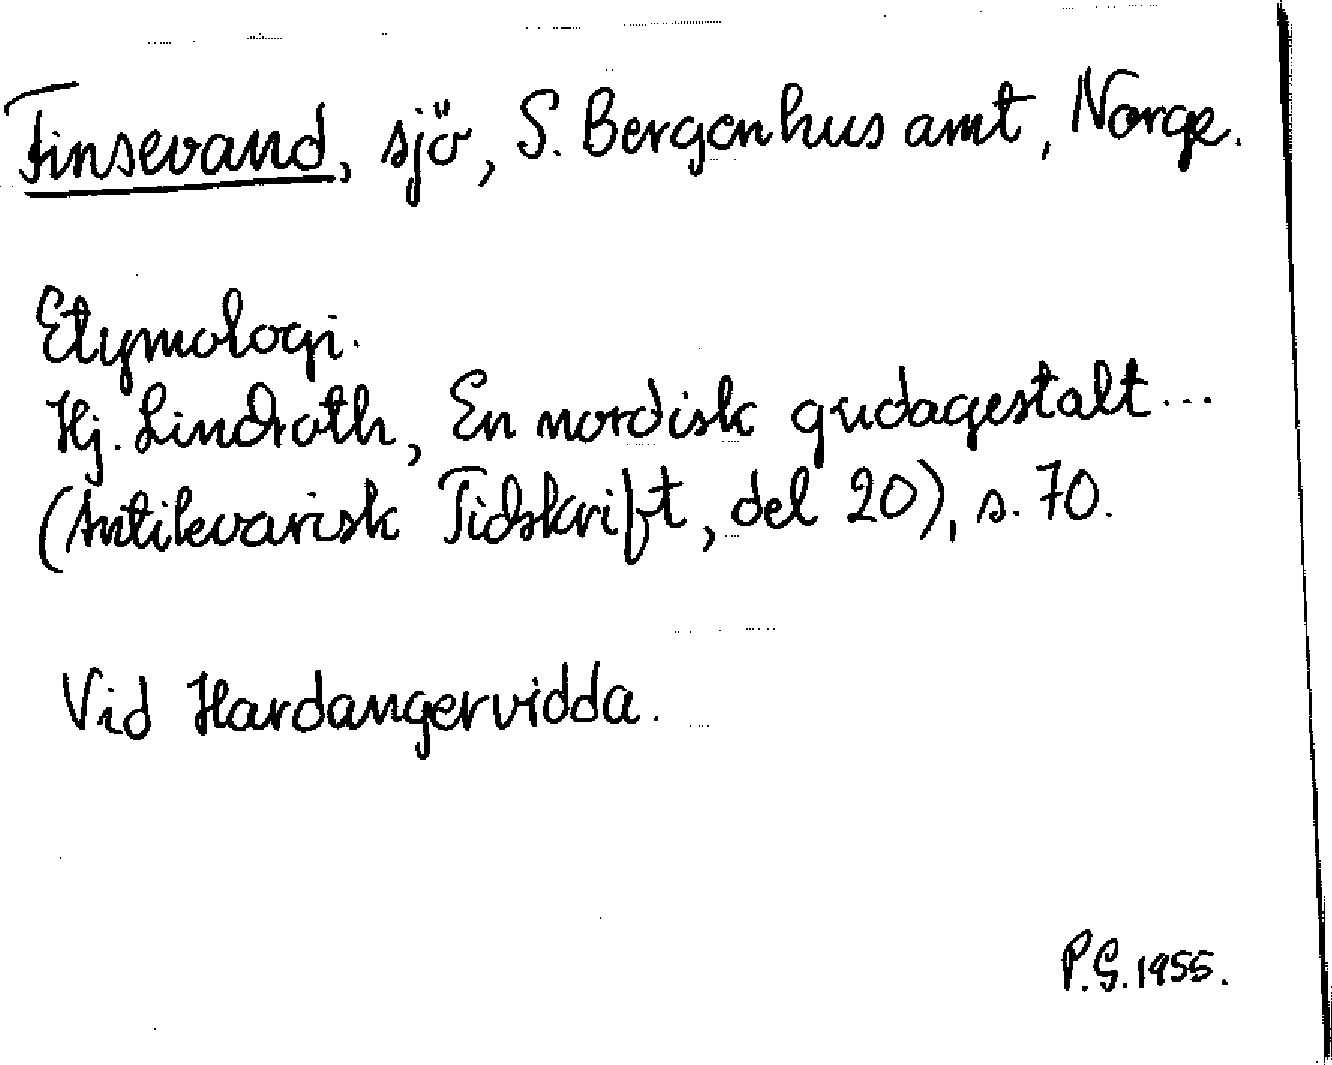 Finsevand, sjö, S. Bergenhus amt, Norge.
Etymologi.
Hj. Lindroth, En nordisk gudagestalt...
(Antikvarisk Tidskrift, del 20), s. 70.
Vid Hardangervidda.
P.G. 1955.